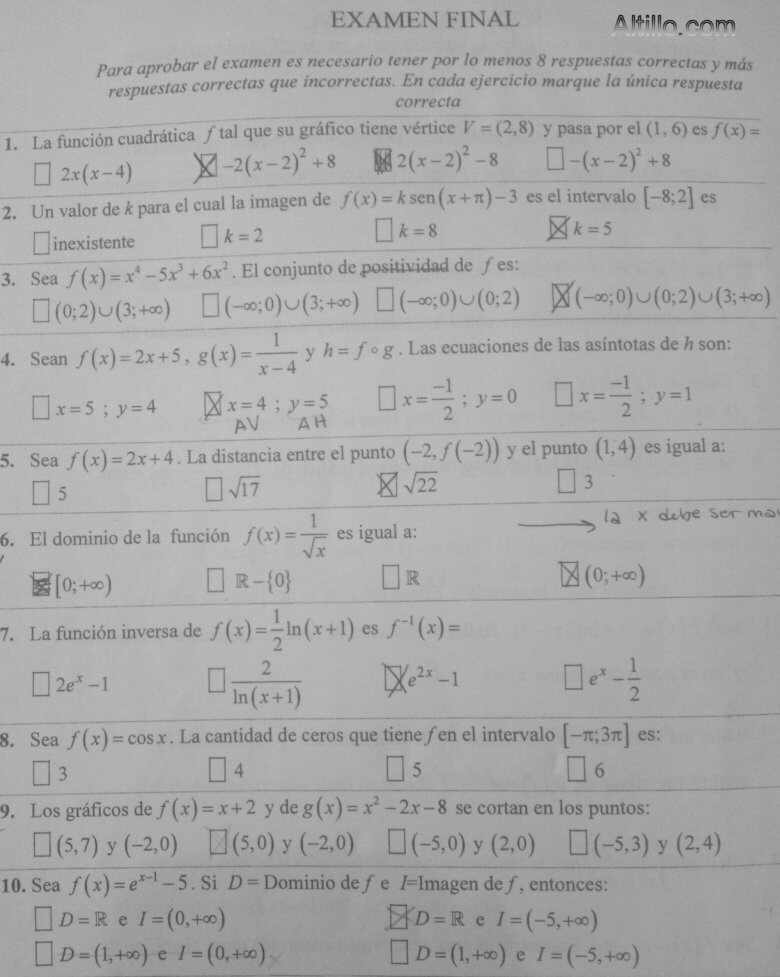 EXAMEN FINAL
Altillo.com
Para aprobar el examen es necesario tener por lo menos 8 respuestas correctas y más
respuestas correctas que incorrectas. En cada ejercicio marque la única respuesta
correcta
1. La función cuadrática f tal que su gráfico tiene vértice V = (2,8) y pasa por el (1, 6) es f(x) =
2x(x−4) −2(x−2)² + 8 2(x−2)² − 8 −(x−2)² + 8
2. Un valor de k para el cual la imagen de f(x) = k sen(x+π) − 3 es el intervalo [−8;2] es
inexistente k = 2 k = 8 k = 5
3. Sea f(x) = x⁴ − 5x³ + 6x². El conjunto de positividad de f es:
(0;2)∪(3;+∞) (−∞;0)∪(3;+∞) (−∞;0)∪(0;2) (−∞;0)∪(0;2)∪(3;+∞)
4. Sean f(x) = 2x+5, g(x) = 1/(x−4) y h = f∘g. Las ecuaciones de las asíntotas de h son:
x = 5 ; y = 4 x = 4 ; y = 5 x = −1/2 ; y = 0 x = −1/2 ; y = 1
AV AH
5. Sea f(x) = 2x+4. La distancia entre el punto (−2, f(−2)) y el punto (1,4) es igual a:
5 √17 √22 3
la x debe ser
6. El dominio de la función f(x) = 1/√x es igual a:
[0;+∞) ℝ−{0} ℝ (0;+∞)
7. La función inversa de f(x) = 1/2 ln(x+1) es f⁻¹(x) =
2eˣ − 1 2/ln(x+1) e²ˣ − 1 eˣ − 1/2
8. Sea f(x) = cos x. La cantidad de ceros que tiene f en el intervalo [−π;3π] es:
3 4 5 6
9. Los gráficos de f(x) = x+2 y de g(x) = x² − 2x − 8 se cortan en los puntos:
(5,7) y (−2,0) (5,0) y (−2,0) (−5,0) y (2,0) (−5,3) y (2,4)
10. Sea f(x) = eˣ⁻¹ − 5. Si D = Dominio de f e I=Imagen de f, entonces:
D = ℝ e I = (0,+∞) D = ℝ e I = (−5,+∞)
D = (1,+∞) e I = (0,+∞) D = (1,+∞) e I = (−5,+∞)